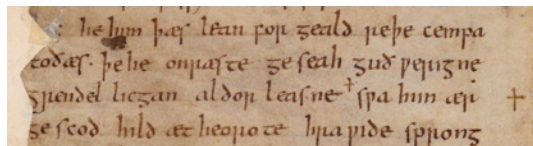 he him þæs lean for geald reþe cempa
toðæs· þe he onræste ge seah guð ƿerigne
grendel licgan aldor leasne + sƿa him ær +
ge scod hild æt heorote hra ƿide sprong